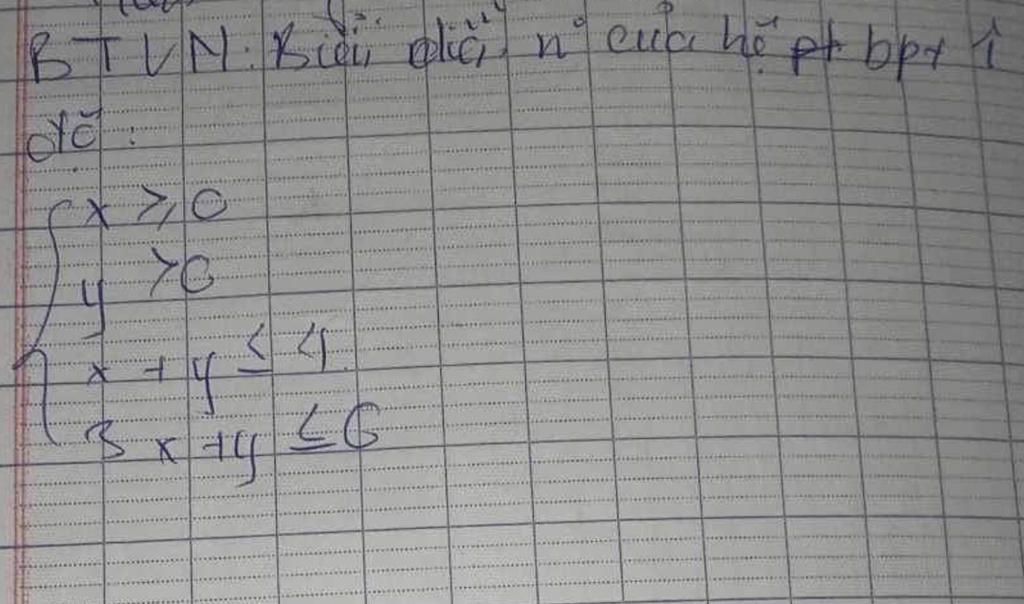 BTVN: Biểu diễn n° của hệ bpt
x ≥ 0
y > 0
x + y ≤ 4
3x + y ≤ 6